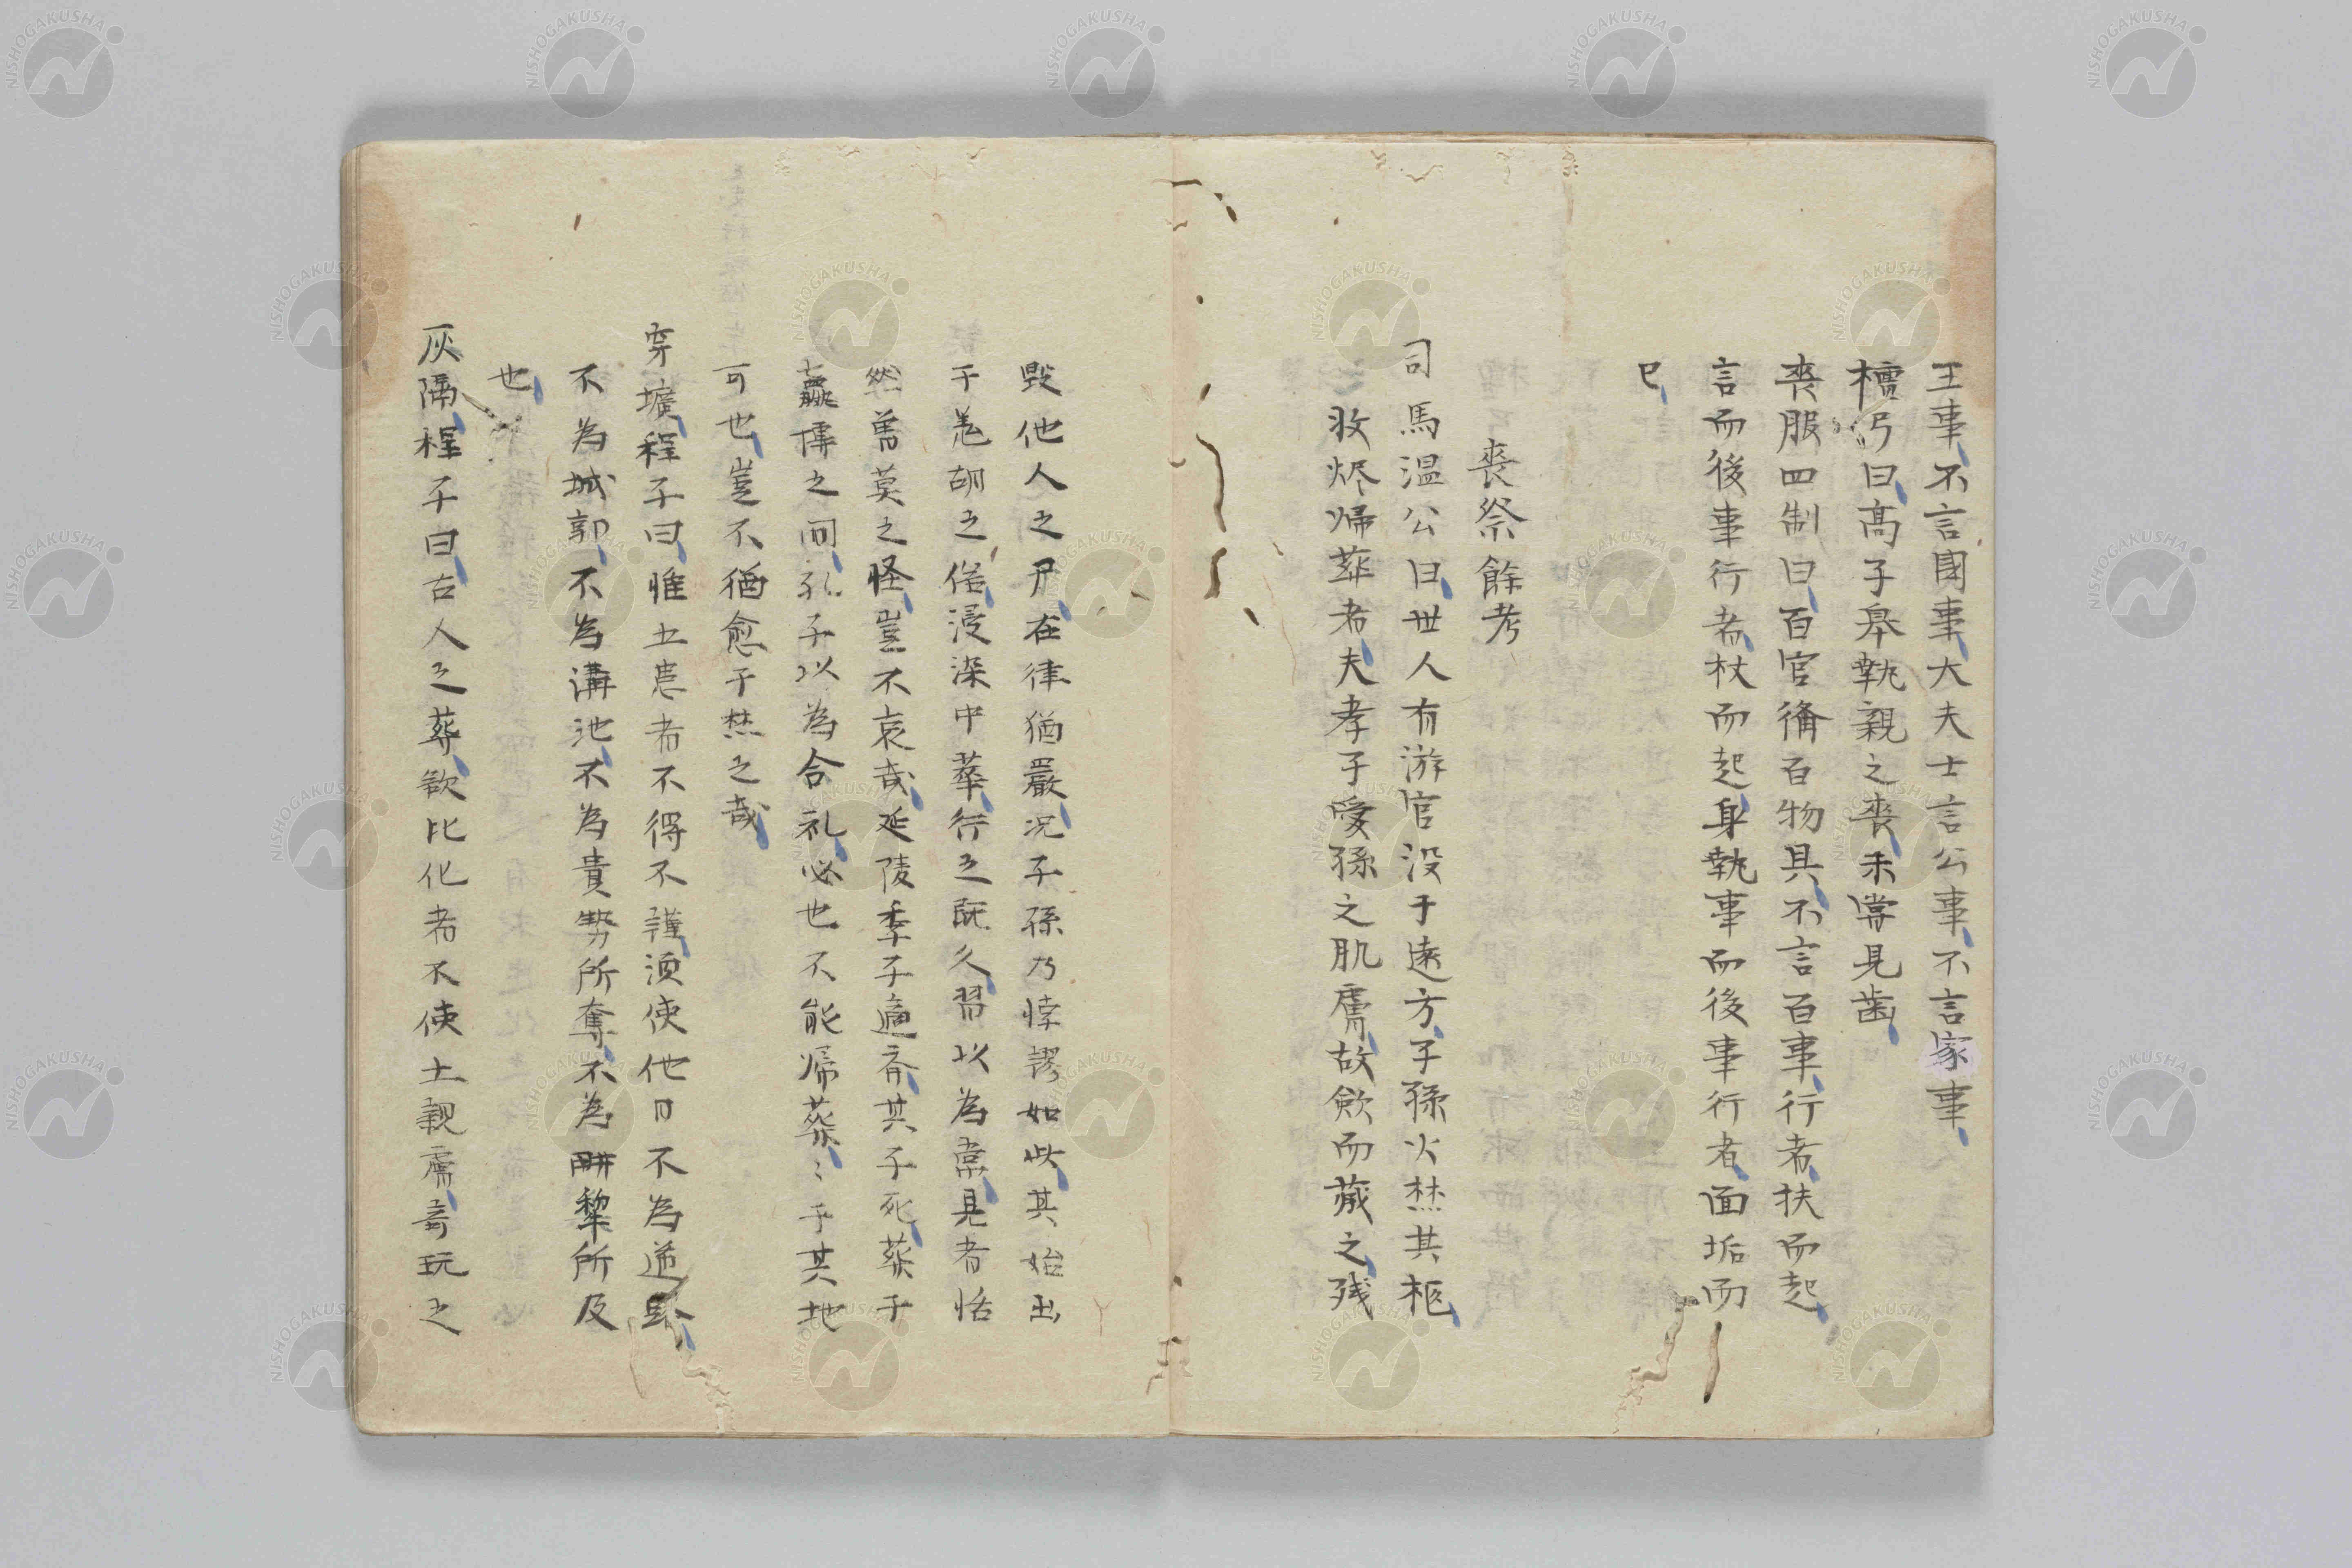 王事、不言国事、大夫士言公事、不言家事、
檀弓曰、高子皐執親之喪、未嘗見齒、
喪服四制曰、百官備百物具、不言百事、行者、扶而起、
言而後事行者、杖而起、身執事而後事行者、面垢而
已、
喪祭餘考
司馬温公曰、世人有游官没于遠方、子孫火焚其柩、
收烬帰葬者、夫孝子愛孫之肌膚、故歛而蔵之、残
毀他人之尸、在律猶嚴、况子孫乃悖謬如此、其始出
于羌胡之俗、浸染中華、行之既久、習以為常、見者恬
然曽莫之怪、豈不哀哉、延陵季子適斉、其子死、葬于
嬴博之間、孔子以為合礼、必也不能帰葬、〻乎其地
可也、豈不猶愈于焚之哉、
穿壙、程子曰、惟五患者不得不謹、須使他日不為道路、
不為城郭、不為溝池、不為貴勢所奪、不為耕犂所及
也、
灰隔、程子曰、古人之葬、欲比化者不使土親膚、奇玩之
NISHOGAKUSHA